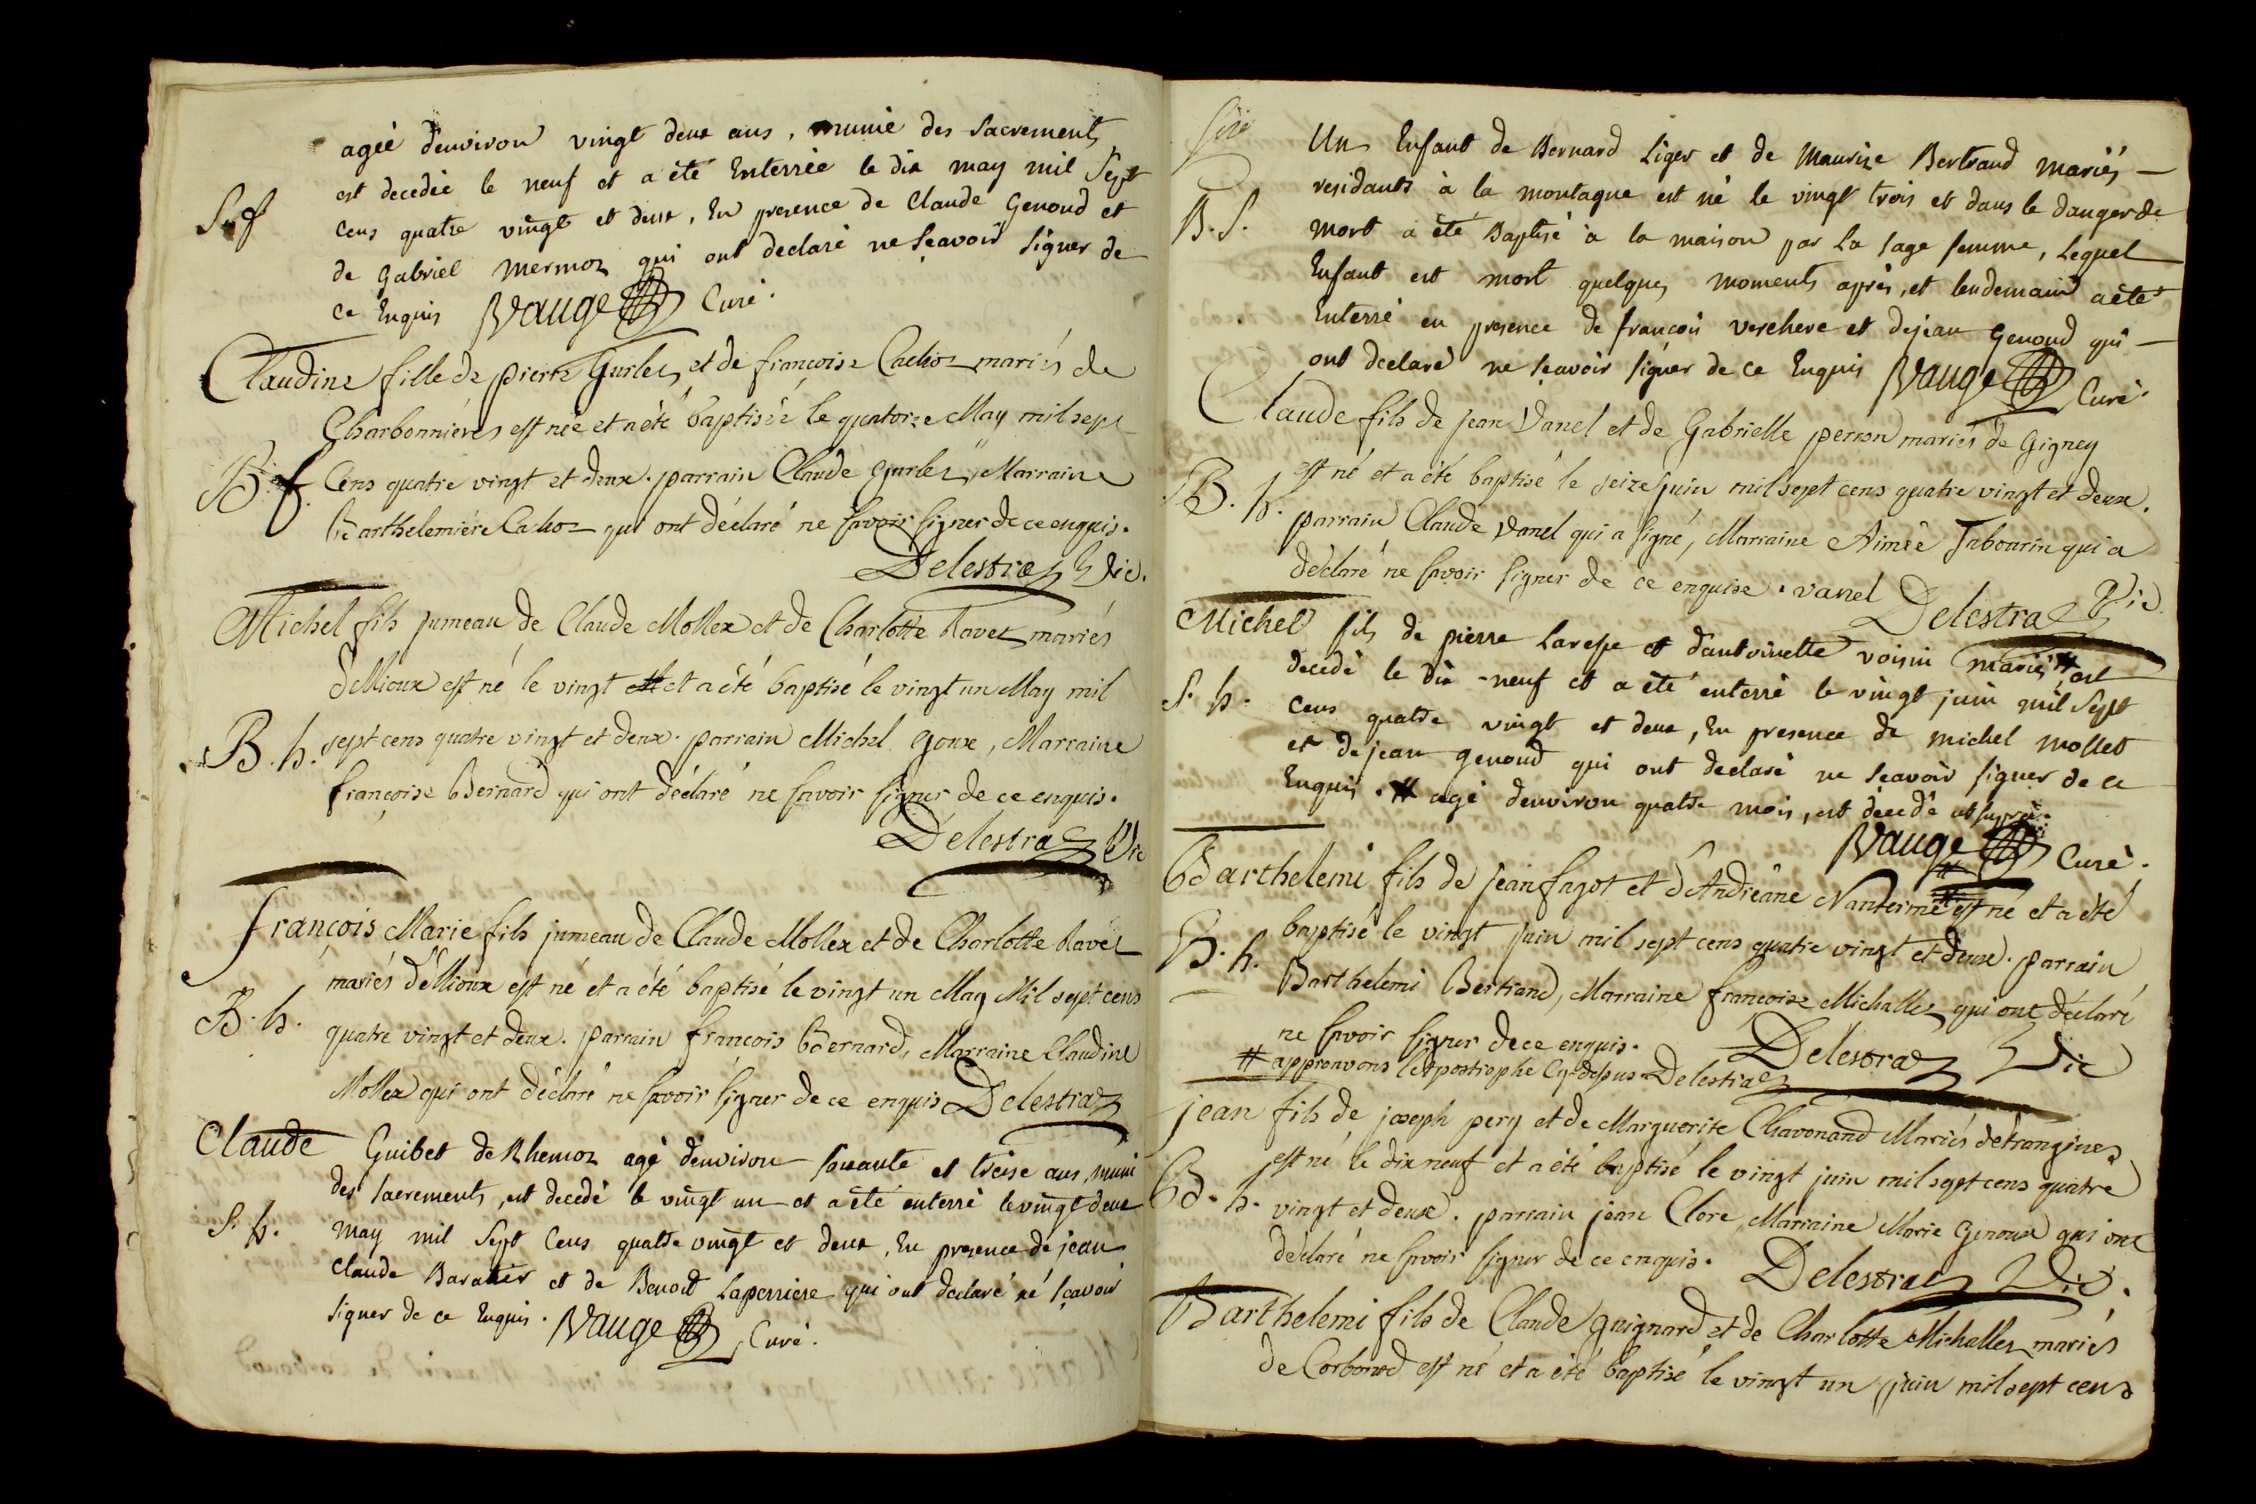 agée d'environ vingt deux ans, munie des Sacrements
est decedée le neuf et a été Enterrée le dix may mil Sept
S. f
cens quatre vingt et deux, En presence de Claude Genoud et
de Gabriel Mermoz qui ont declaré ne sçavoir signer de
ce Enquis Vauge Curé.
Claudine fille de pierre Gurlez et de françoise Cachoz mariés de
Charbonniéres est née et a été baptisée le quatorze May mil sept
B. f.
Cens quatre vingt et deux. parrain Claude Gurlez, Marraine
Barthelemiére Cachoz qui ont déclaré ne savoir signer de ce enquis.
Delestraz Vic.
Michel fils jumeau de Claude Mollex et de Charlotte Ravez mariés
d'Ellioux est né le vingt et a été baptisé le vingt un May mil
B. h.
sept cens quatre vingt et deux. parrain Michel Goux, Marraine
françoise Bernard qui ont déclaré ne savoir signer de ce enquis.
Delestraz Vic
françois Marie fils jumeau de Claude Mollex et de Charlotte Ravez
mariés d'Ellioux est né et a été baptisé le vingt un May Mil sept cens
B. h.
quatre vingt et deux. parrain françois Bernard, Marraine Claudine
Mollex qui ont déclaré ne savoir signer de ce enquis Delestraz
Claude Guibet de Rhemoz agé d'environ soixante et treise ans, muni
des sacrements, est decedé le vingt un et a été enterré le vingt deux
S. h.
may mil Sept Cens quatre vingt et deux, En presence de jean
Claude Baratier et de Benoit Laperriere qui ont declaré né sçavoir
signer de ce Enquis. Vauge Curé.
Un Enfant de Bernard Liger et de Maurize Bertrand mariés
residants à la montagne est né le vingt trois et dans le danger de
B. S.
mort a été Baptisé à la maison par La sage femme, Lequel
Enfant est mort quelques moments après, et lendemain a été
Enterré en presence de françois verchere et de jean Genoud qui
ont declaré ne sçavoir signer de ce Enquis Vauge Curé.
Claude fils de jean Vanel et de Gabrielle perron mariés de Gigney
est né et a été baptisé le seize juin mil sept cens quatre vingt et deux.
B. h.
parrain Claude Vanel qui a signé, Marraine Aimée Tabourin qui a
déclaré ne savoir signer de ce enquise. vanel Delestraz Vic
Michel fils de pierre Larese et d'antoinette voisin mariés # est
decedé le dix-neuf et a été enterré le vingt juin mil Sept
S. h.
cens quatre vingt et deux, En presence de michel mollet
et de jean genoud qui ont declaré ne sçavoir signer de ce
Enquis. # agé d'environ quatre mois, est decedé ut supra.
Vauge Curé.
Barthelemi fils de jean fagot et d'Andréane Nanterme # est né et a été
baptisé le vingt juin mil sept cens quatre vingt et deux. parrain
B. h.
Barthelemi Bertrand, Marraine françoise Michallez qui ont déclaré
ne savoir signer de ce enquis. Delestraz Vic
# approuvons l'apostrophe Cy-dessus Delestraz
jean fils de joseph pery et de Marguerite Chavonand Mariés d'étrangines
est né le dix neuf et a été baptisé le vingt juin mil sept cens quatre
B. h.
vingt et deux. parrain jean Clerc, Marraine Marie Genoux qui ont
déclaré ne savoir signer de ce enquis. Delestraz Vic.
Barthelemi fils de Claude guignard et de Charlotte Michallez mariés
de Corbonod est né et a été baptisé le vingt un juin mil sept cens